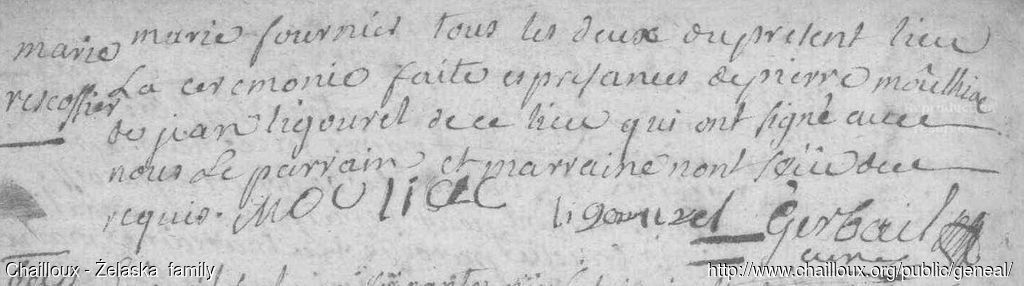 marie
rescossier
marie fournier tous les deux du present lieu
La ceremonie faite es presances de pierre moûlhiac
de jean ligouzel de ce lieu qui ont signé avec
nous Le parrain et marraine nont sçû de ce
requis. MOULIAC ligouzel Gerbail
curé
Chailloux - Żelaska family
http://www.chailloux.org/public/geneal/